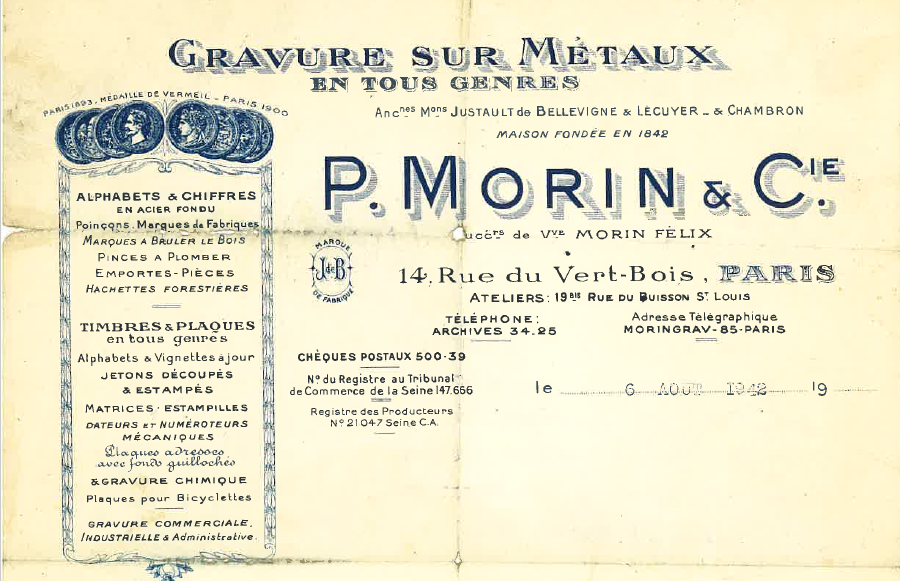 GRAVURE SUR MÉTAUX
EN TOUS GENRES
PARIS 1893. MÉDAILLE DE VERMEIL - PARIS 1900
Ancnes Mons JUSTAULT de BELLEVIGNE & LÉCUYER - & CHAMBRON
MAISON FONDÉE EN 1842
P. MORIN & CIE.
uccrs de Vve MORIN FÉLIX
MARQUE
J de B
DE FABRIQUE
14, Rue du Vert-Bois, PARIS
ATELIERS: 19BIS RUE DU BUISSON ST LOUIS
TÉLÉPHONE:
ARCHIVES 34.25
Adresse Télégraphique
MORINGRAV-85-PARIS
CHÈQUES POSTAUX 500-39
No du Registre au Tribunal
de Commerce de la Seine 147.666
Registre des Producteurs
No 21047 Seine C.A.
le 6 AOUT 1942 19
ALPHABETS & CHIFFRES
EN ACIER FONDU
Poinçons, Marques de Fabriques
MARQUES A BRULER LE BOIS
PINCES A PLOMBER
EMPORTES-PIÈCES
HACHETTES FORESTIÈRES
TIMBRES & PLAQUES
en tous genres
Alphabets & Vignettes à jour
JETONS DÉCOUPÉS
& ESTAMPÉS
MATRICES · ESTAMPILLES
DATEURS ET NUMÉROTEURS
MÉCANIQUES
Plaques adresses
avec fonds guillochés
& GRAVURE CHIMIQUE
Plaques pour Bicyclettes
GRAVURE COMMERCIALE,
INDUSTRIELLE & Administrative.